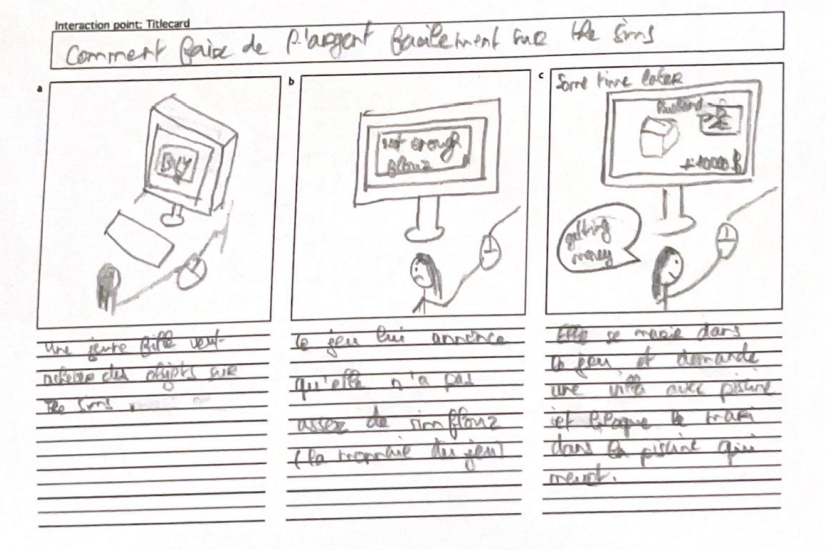 Interaction point: Titlecard
Comment faire de l'argent facilement sur the sims
a
BUY
Une jeune fille veut
acheter des objets sur
The Sims
b
not enough
flouz
Le jeu lui annonce
qu'elle n'a pas
assez de simflouz
(la monnaie du jeu)
c
Some time later
Husband
+10000 §
getting
money
Elle se marie dans
le jeu et demande
une villa avec piscine
et bloque le mari
dans la piscine qui
meurt.